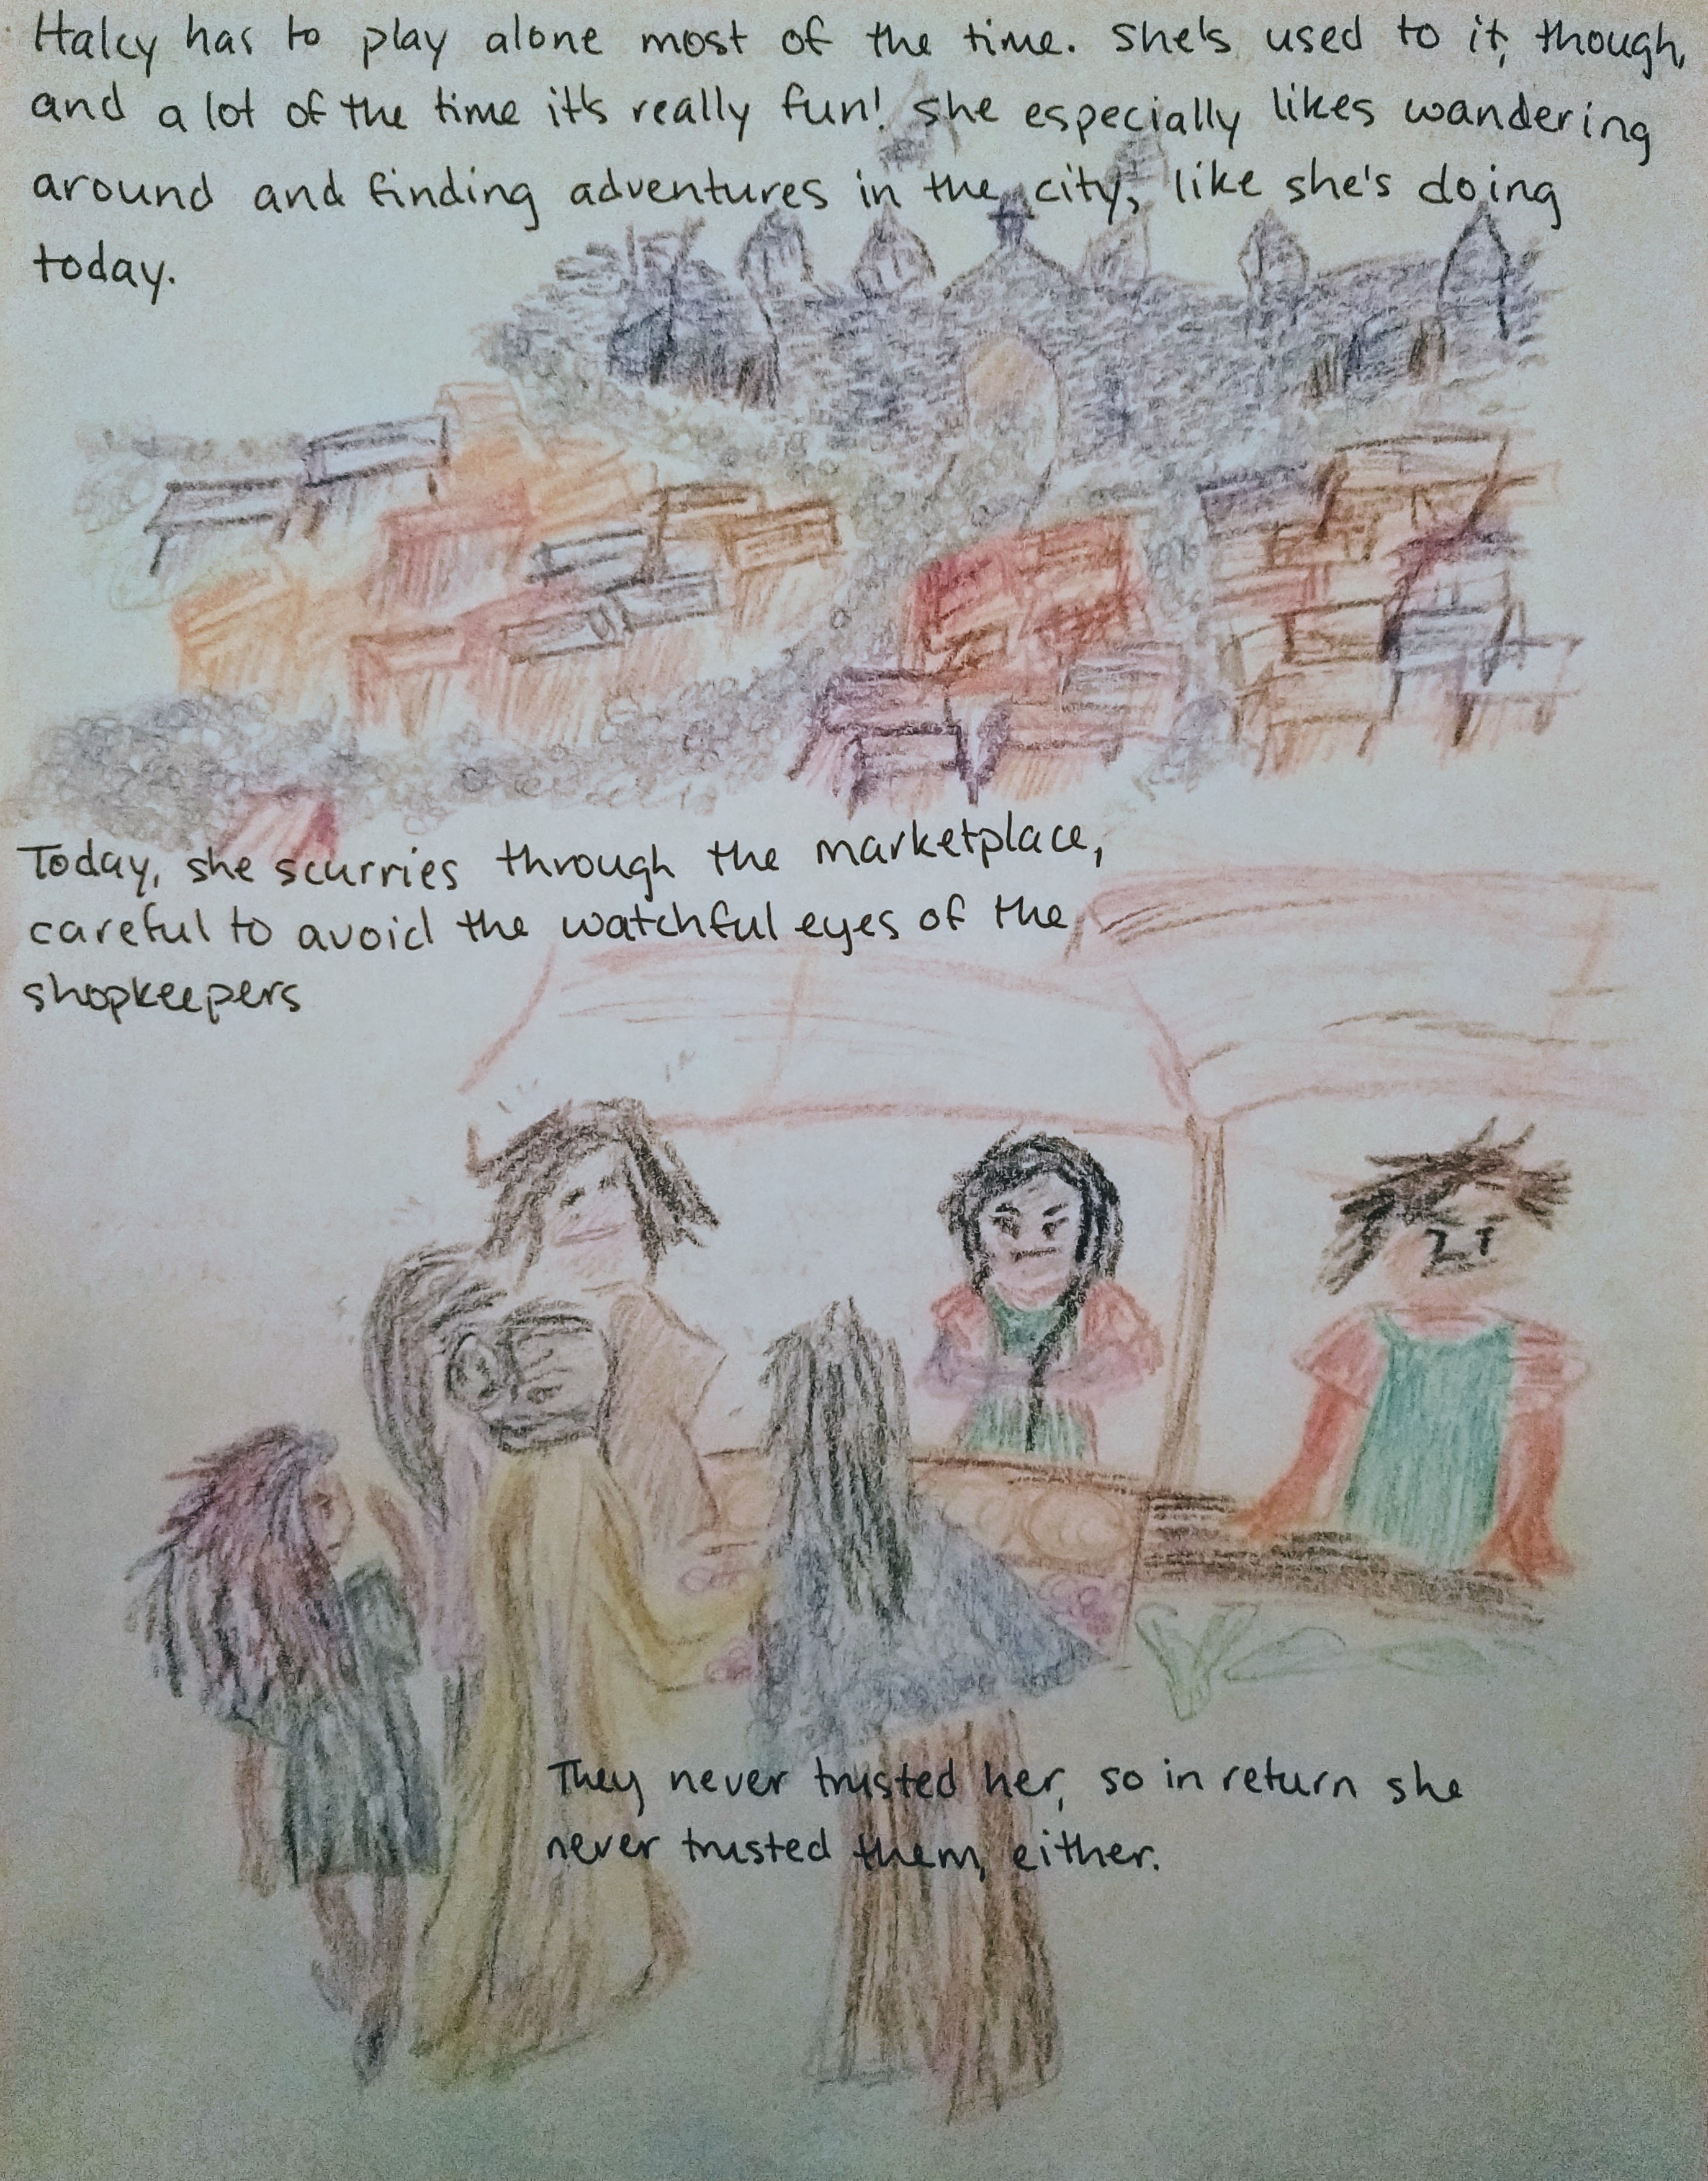 Halcy has to play alone most of the time. She's used to it, though,
and a lot of the time it's really fun! She especially likes wandering
around and finding adventures in the city, like she's doing
today.
Today, she scurries through the marketplace,
careful to avoid the watchful eyes of the
shopkeepers
They never trusted her, so in return she
never trusted them, either.